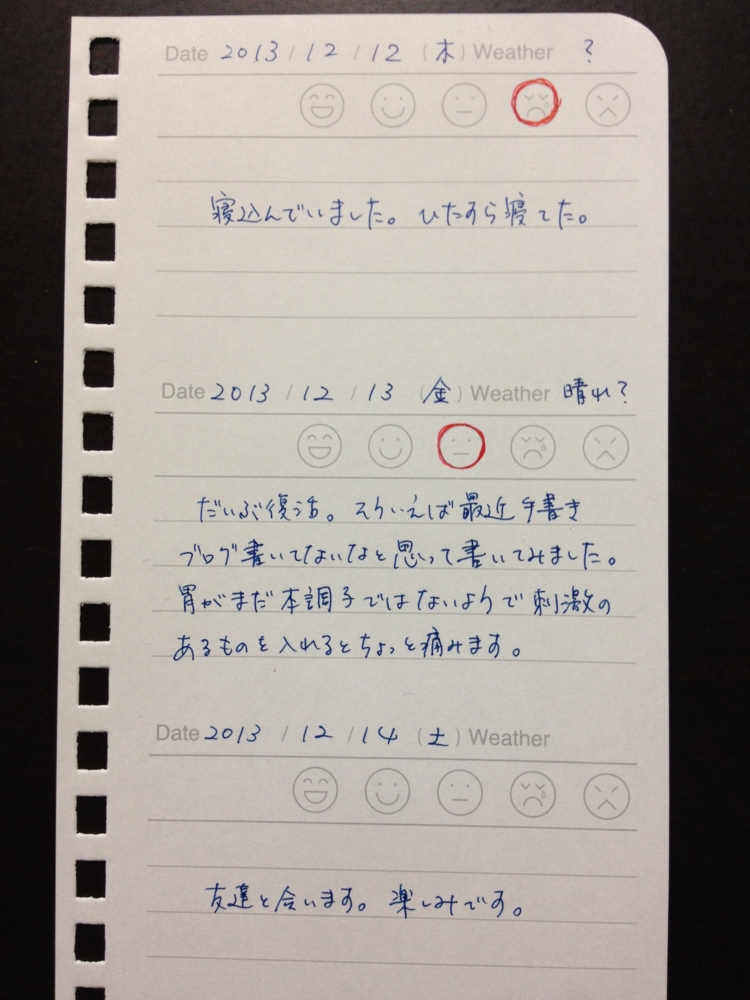 Date 2013 / 12 / 12 (木) Weather ?
寝込んでいました。ひたすら寝てた。
Date 2013 / 12 / 13 (金) Weather 晴れ?
だいぶ復活。そういえば最近手書き
ブログ書いてないなと思って書いてみました。
胃がまだ本調子ではないようで刺激の
あるものを入れるとちょっと痛みます。
Date 2013 / 12 / 14 (土) Weather
友達と会います。楽しみです。